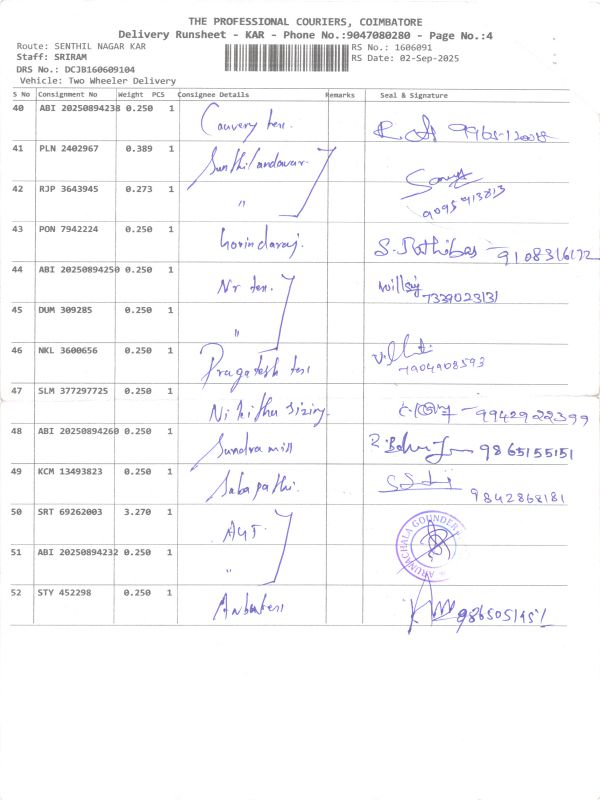 THE PROFESSIONAL COURIERS, COIMBATORE
Delivery Runsheet - KAR - Phone No.:9047080280 - Page No.:4
Route: SENTHIL NAGAR KAR RS No.: 1606091
Staff: SRIRAM RS Date: 02-Sep-2025
DRS No.: DCJB160609104
Vehicle: Two Wheeler Delivery
S No Consignment No Weight PCS Consignee Details Remarks Seal & Signature
40 ABI 20250894238 0.250 1 Cauvery tex.
41 PLN 2402967 0.389 1
42 RJP 3643945 0.273 1 " 9095913813
43 PON 7942224 0.250 1 Govindaraj. 9108316172
44 ABI 20250894250 0.250 1 Nr tex. 7339023131
45 DUM 309285 0.250 1 "
46 NKL 3600656 0.250 1 Pragatesh tex 7904908593
47 SLM 377297725 0.250 1 Nikitha sizing. 9942922399
48 ABI 20250894260 0.250 1 Sundra mill 9865155151
49 KCM 13493823 0.250 1 Sabapathi. 9842868181
50 SRT 69262003 3.270 1 ARUNACHALA GOUNDER
51 ABI 20250894232 0.250 1 "
52 STY 452298 0.250 1